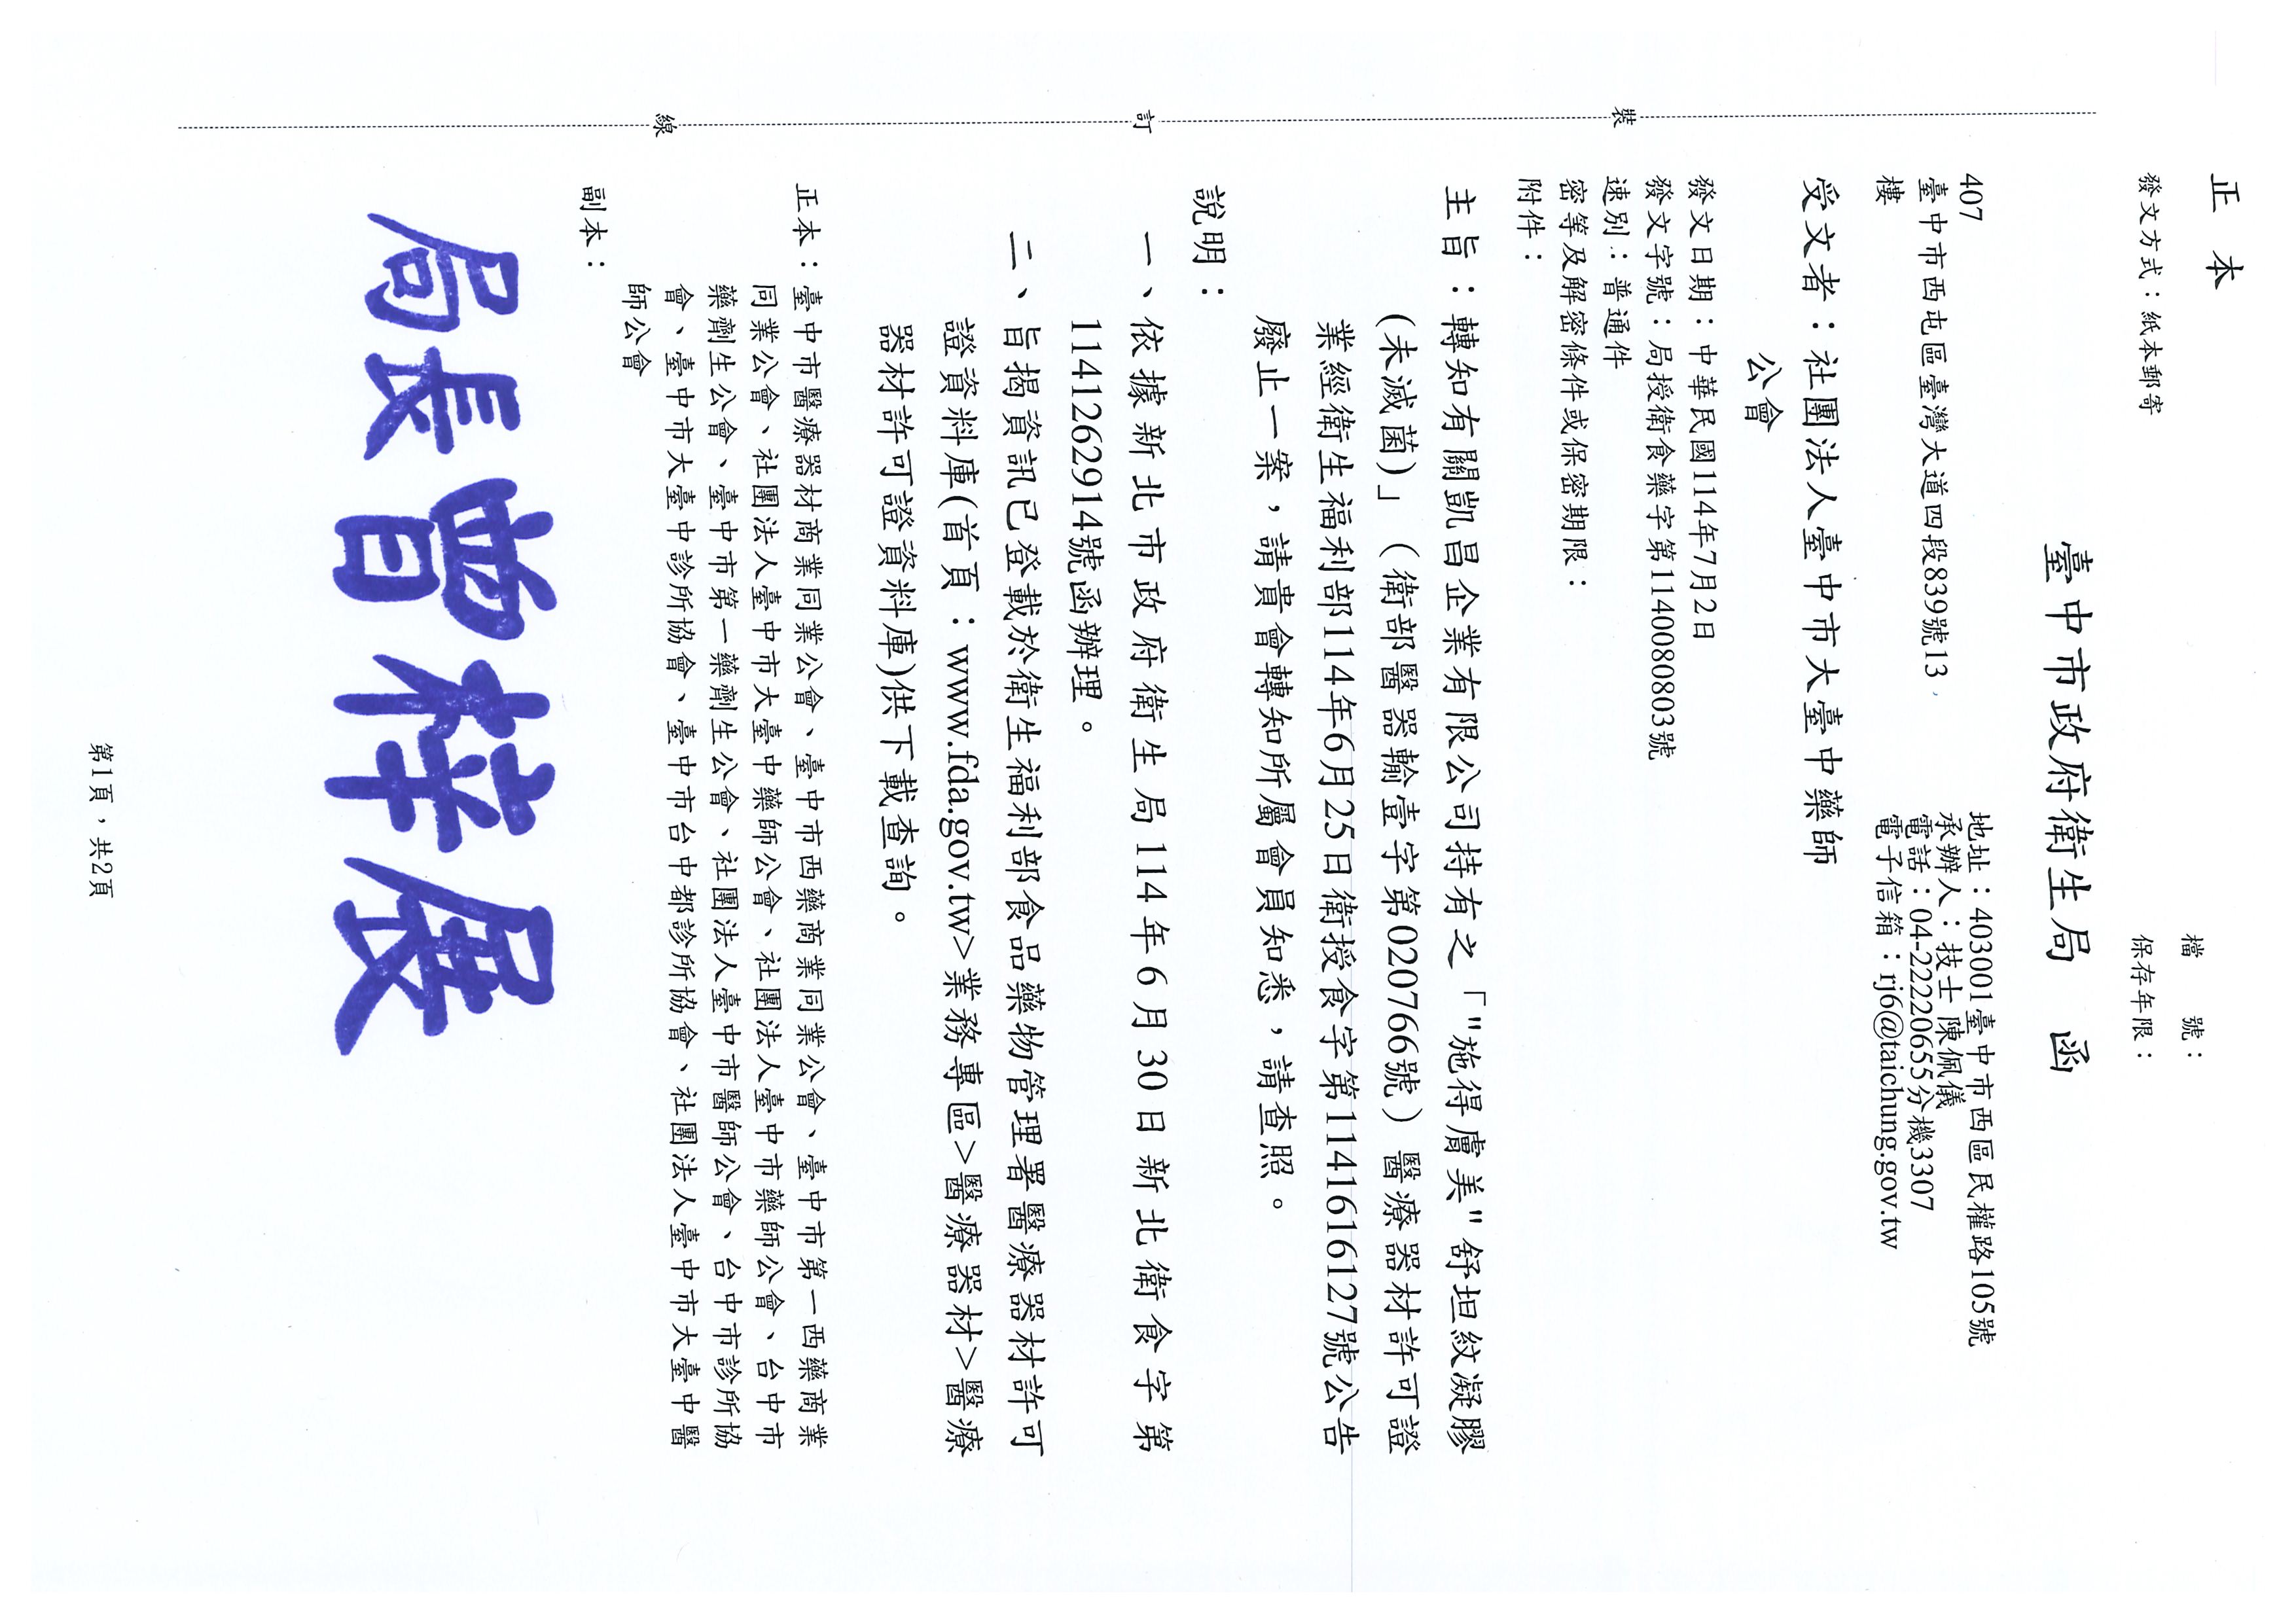 正本
檔　號：
保存年限：
發文方式：紙本郵寄
臺中市政府衛生局　函
地址：403001臺中市西區民權路105號
承辦人：技士 陳佩儀
電話：04-22220655分機3307
電子信箱：rj6@taichung.gov.tw
407
臺中市西屯區臺灣大道四段839號13
樓
受文者：社團法人臺中市大臺中藥師
公會
發文日期：中華民國114年7月2日
發文字號：局授衛食藥字第1140080803號
速別：普通件
密等及解密條件或保密期限：
附件：
主旨：轉知有關凱昌企業有限公司持有之「"施得膚美"舒坦紋凝膠
(未滅菌)」（衛部醫器輸壹字第020766號）醫療器材許可證
業經衛生福利部114年6月25日衛授食字第1141616127號公告
廢止一案，請貴會轉知所屬會員知悉，請查照。
說明：
一、依據新北市政府衛生局114年6月30日新北衛食字第
1141262914號函辦理。
二、旨揭資訊已登載於衛生福利部食品藥物管理署醫療器材許可
證資料庫(首頁：www.fda.gov.tw>業務專區>醫療器材>醫療
器材許可證資料庫)供下載查詢。
正本：臺中市醫療器材商業同業公會、臺中市西藥商業同業公會、臺中市第一西藥商業
同業公會、社團法人臺中市大臺中藥師公會、社團法人臺中市藥師公會、台中市
藥劑生公會、臺中市第一藥劑生公會、社團法人臺中市醫師公會、台中市診所協
會、臺中市大臺中診所協會、臺中市台中都診所協會、社團法人臺中市大臺中醫
師公會
副本：
局長曾梓展
裝
訂
線
第1頁，共2頁